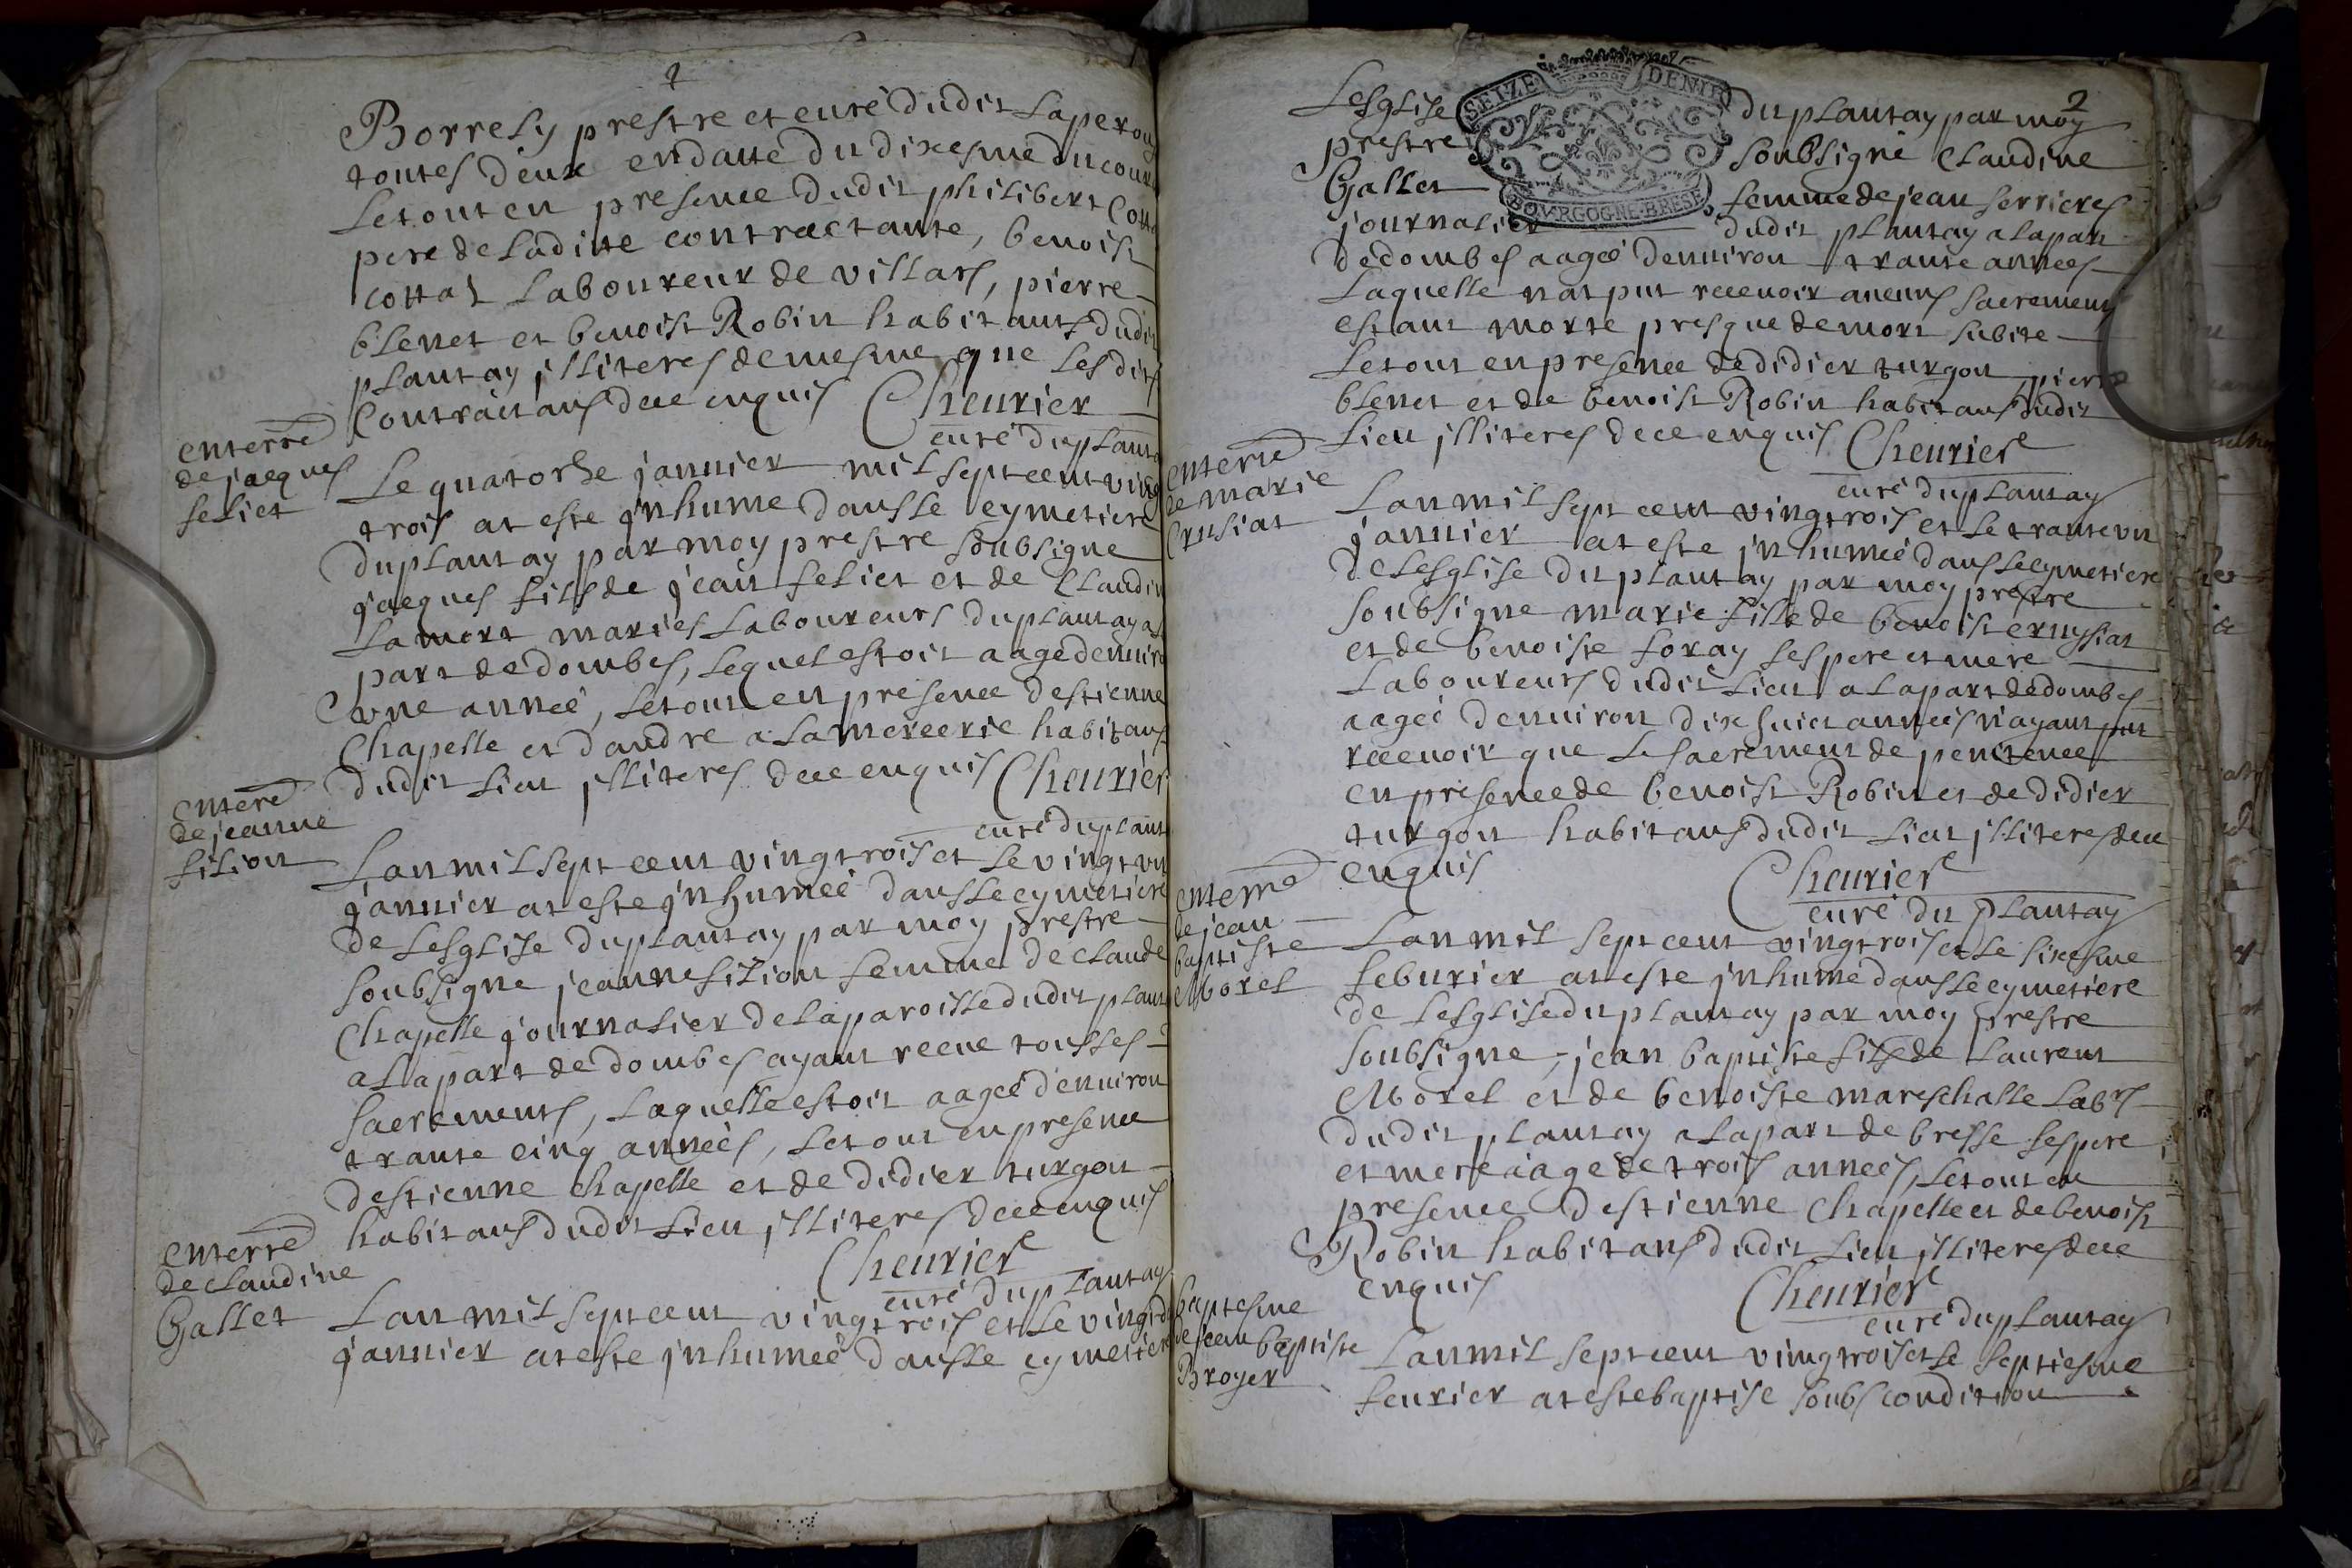 Borrely prestre et curé dudit Laperou
toutes deux en datte du dixesme du cour
Le tout en presence dudit philibert Cott
pere de Ladite contractante, benoist
cottat Laboureur de villars, pierre
blenet et benoist Robin habitans dudit
plantay jlliteres de mesme que Lesdits
Contractans de ce enquis Cheurier
curé du planta
enterré
de jacques
feliet
Le quatorze januier mil sept cent ving
trois at este jnhume dans Le cymetiere
du plantay par moy prestre soubsigne
jacques fils de jean feliet et de Claudin
Lamort mariés Laboureurs du plantay a
part de dombes, Lequel estoit aage denuir
une anneé, Le tout en presence destienne
Chapelle et dandre a Lamercerie habitans
dudit Lieu jlliteres de ce enquis Cheurier
curé du plant
enteré
de jeanne
filion
Lan mil sept cent vingt trois et Le vingt un
januier at este jnhumeé dans Le cymetiere
de Lesglise du plantay par moy prestre
soubsigne jeanne filion femme de claude
Chapelle journalier de La paroisse dudit plant
a La part de dombes ayant receue tous Les
sacrements, Laquelle estoit aageé denuiron
trante cinq anneés, Le tout en presence
destienne chapelle et de didier turgon
habitans dudit Lieu jlliteres de ce enquis
Cheurier
curé du plantay
enterré
de claudine
Gallet
Lan mil sept cent vingt trois et Le vingt d
januier at este jnhumeé dans Le cymetiere
2
SEIZE DENIE
BOURGOGNE·BRESE
Lesglise du plantay par moy
prestre soubsigné Claudine
Gallet femme de jean ferrieres
journalier dudit plantay a La part
de dombes aageé denuiron trante anneés
Laquelle nat put receuoir aucuns sacrements
estant morte presque de mort subite
Le tout en presence de didier turgon pierre
blenet et de benoist Robin habitans dudit
Lieu jlliteres de ce enquis Cheurier
curé du plantay
enterré
de marie
Crusiat
Lan mil sept cent vingt trois et Le trante un
januier at este jnhumeé dans Le cymetiere
de Lesglise du plantay par moy prestre
soubsigne marie fille de benoist crusiat
et de benoiste foray ses pere et mere
Laboureurs dudit Lieu a La part de dombes
aageé denuiron dix huict anneés nayant put
receuoir que Le sacrement de penitence
en presence de benoist Robin et de didier
turgon habitans dudit Lieu jlliteres de ce
enquis Cheurier
curé du plantay
enterré
de jean
baptiste
Morel
Lan mil sept cent vingt trois et Le sixesme
feburier at este jnhumé dans Le cymetiere
de Lesglise du plantay par moy prestre
soubsigne, jean baptiste fils de Laurent
Morel et de benoiste mareschalle Labrs
dudit plantay a La part de bresse ses pere
et mere aagé de trois anneés, Le tout en
presence destienne Chapelle et de benoist
Robin habitans dudit Lieu jlliteres de ce
enquis Cheurier
curé du plantay
baptesme
de jean baptiste
Broyer
Lan mil sept cent vingt trois et Le septiesme
feurier at este baptise soubs condition